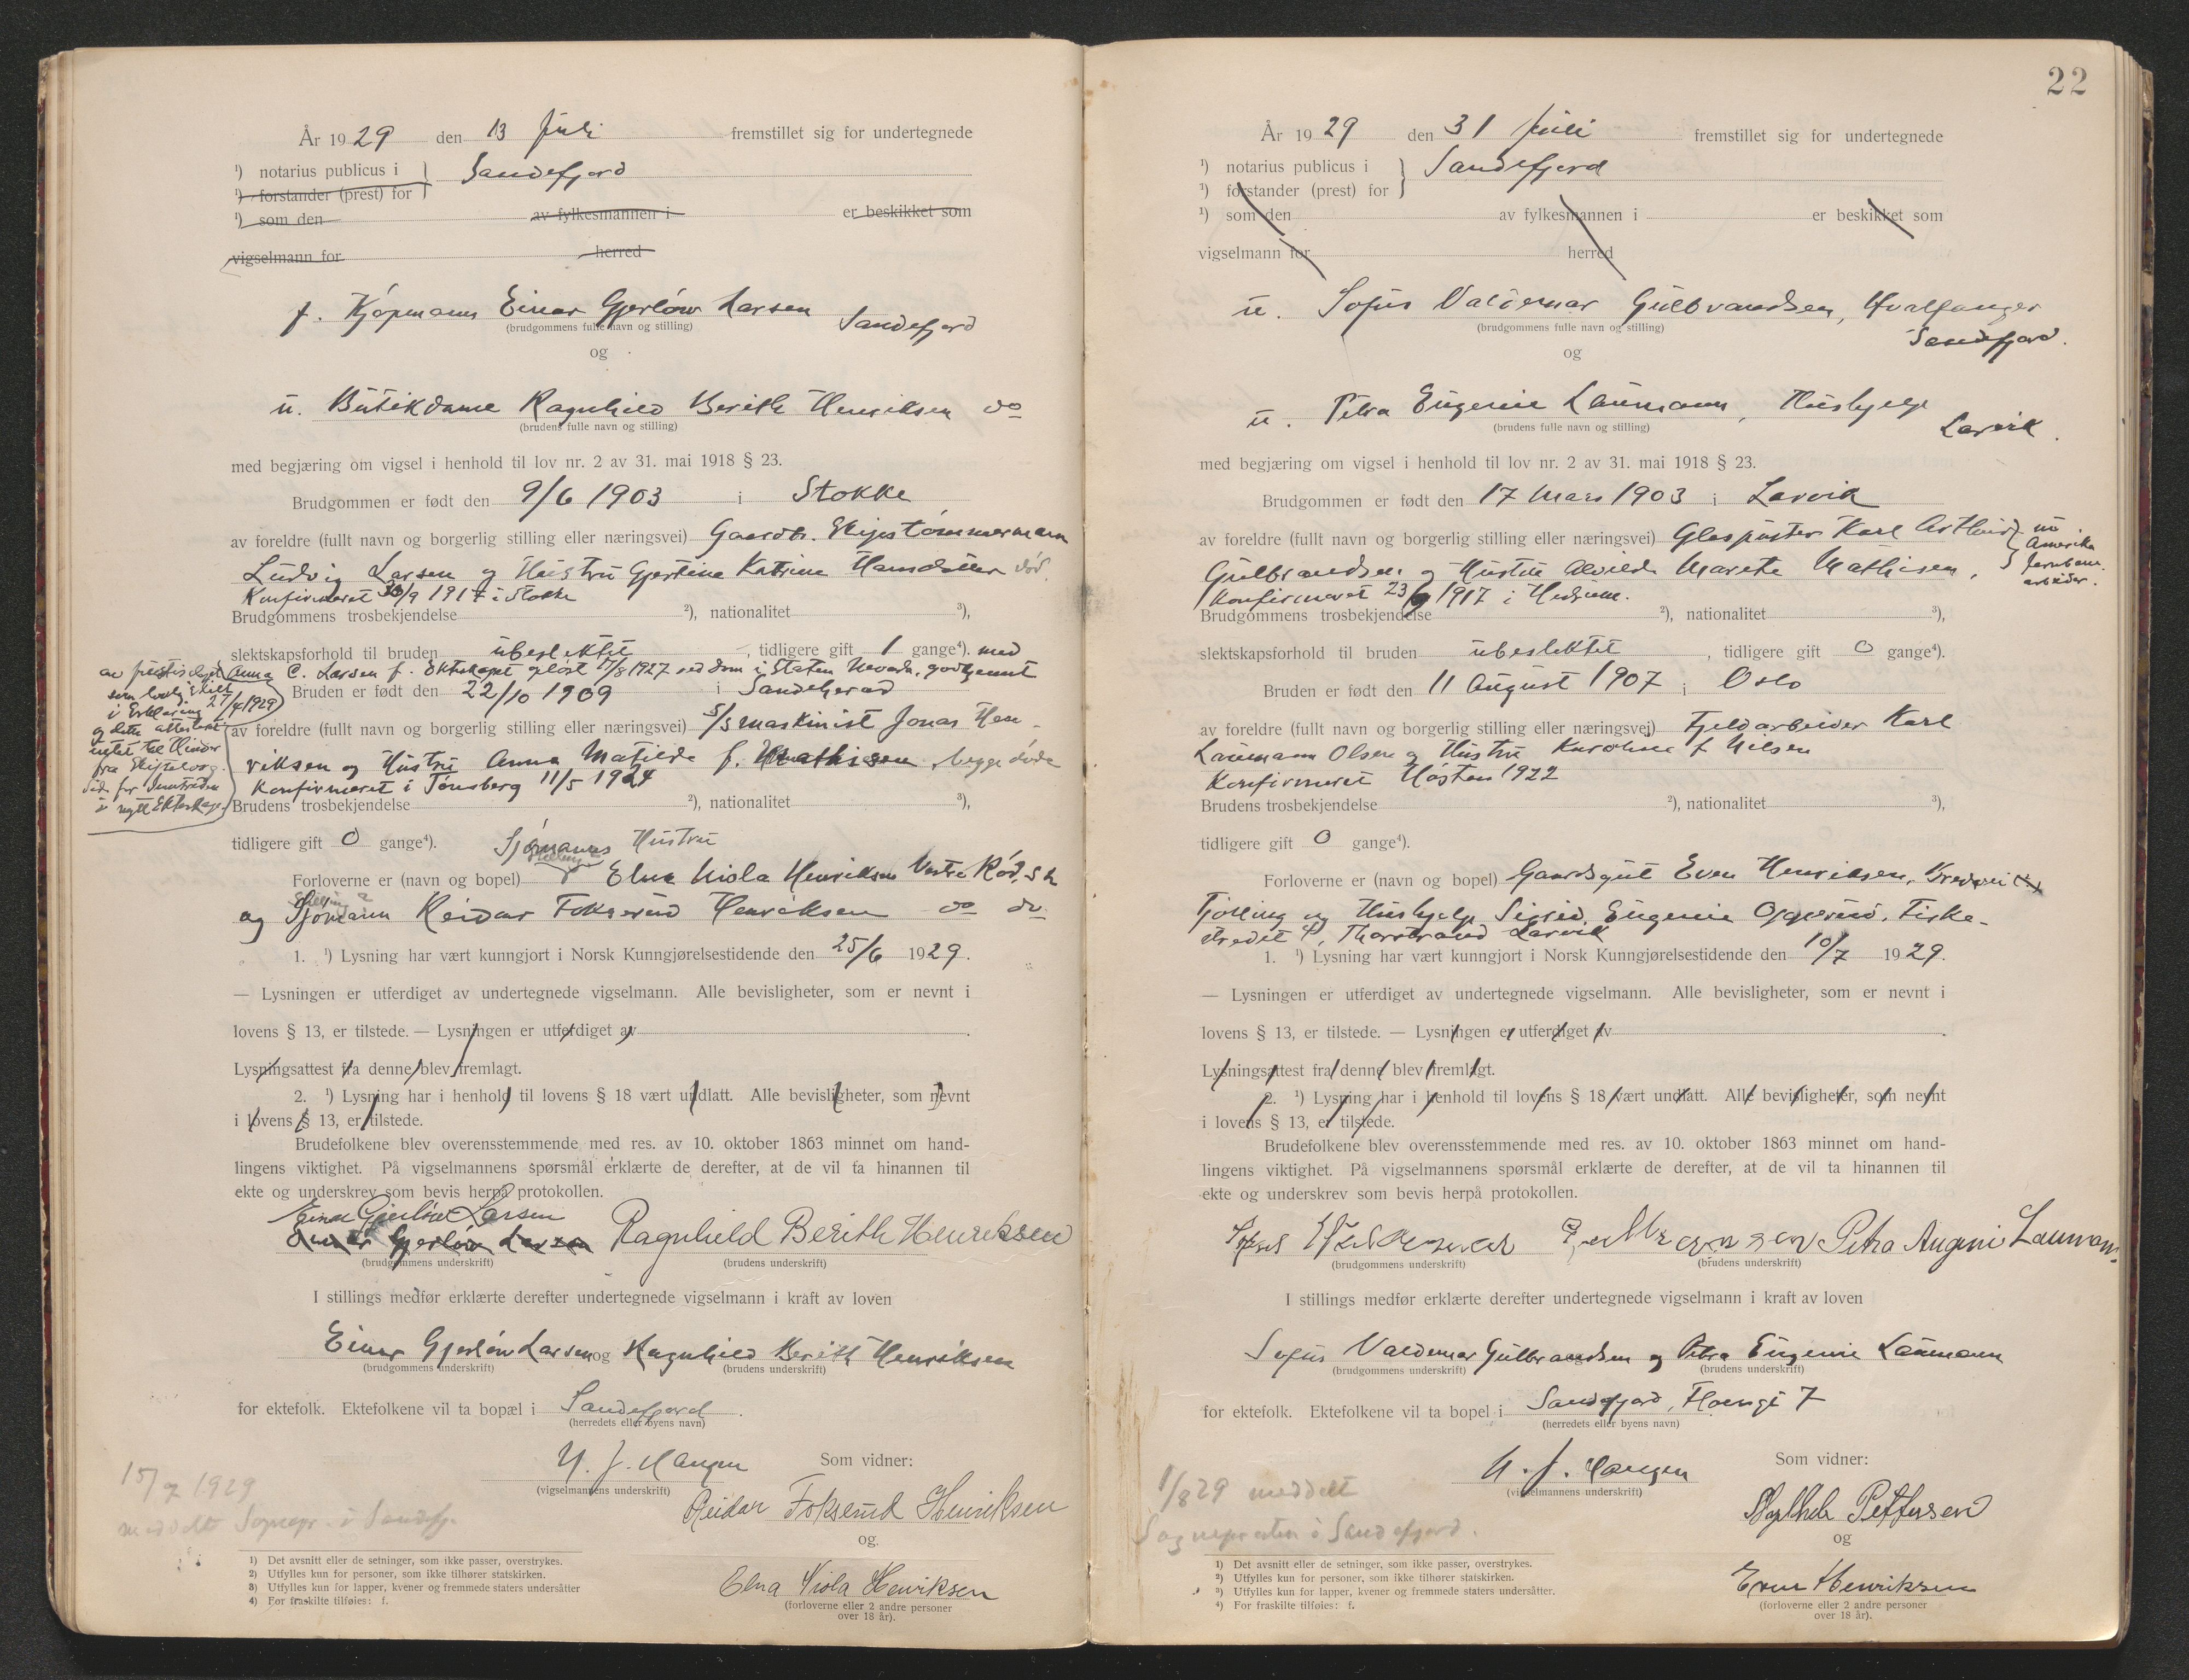 År 1929 den 13 Juli fremstillet sig for undertegnede
¹) notarius publicus i } Sandefjord
¹) forstander (prest) for
¹) som den av fylkesmannen i er beskikket som
vigselmann for herred
f. Kjøpmann Einar Gjerløw Larsen Sandefjord
(brudgommens fulle navn og stilling)
og
u. Butikdame Ragnhild Berith Henriksen do
(brudens fulle navn og stilling)
med begjæring om vigsel i henhold til lov nr. 2 av 31. mai 1918 § 23.
Brudgommen er født den 9/6 1903 i Stokke
av foreldre (fullt navn og borgerlig stilling eller næringsvei) Gaardbr. Skipstømmermann
Ludvig Larsen og Hustru Gjertine Katrine Hansdatter død.
Konfirmeret 23/9 1917 i Stokke
Brudgommens trosbekjendelse ²), nationalitet ³),
slektskapsforhold til bruden ubeslektet, tidligere gift 1 gange⁴). med
Anna C. Larsen f. Ekteskapet opløst 17/8 1927 ved dom i Staten Nevada, godkjennt
av justisdepet
som lovlig skilt
i Erklæring 27/4 1929
og dette attesteret
intet til Hinder
fra Skiftevæs-
side for Inntræden
i nytt Ekteskap
Bruden er født den 22/10 1909 i Sandeherad
av foreldre (fullt navn og borgerlig stilling eller næringsvei) S/S maskinist Jonas Hen-
riksen og Hustru Anna Matilde f. Mathisen, begge døde
Konfirmeret i Tønsberg 11/5 1924
Brudens trosbekjendelse ²), nationalitet ³),
tidligere gift 0 gange⁴). Sjømanns Hustru
Stilling?
Forloverne er (navn og bopel) Elna Viola Henriksen Vestre Rød, S h
Stilling?
og Sjømann Reidar Fokserud Henriksen do do
1. ¹) Lysning har vært kunngjort i Norsk Kunngjørelsestidende den 25/6 1929.
— Lysningen er utferdiget av undertegnede vigselmann. Alle bevisligheter, som er nevnt i
lovens § 13, er tilstede. — Lysningen er utferdiget av
Lysningsattest fra denne blev fremlagt.
2. ¹) Lysning har i henhold til lovens § 18 vært undlatt. Alle bevisligheter, som nevnt
i lovens § 13, er tilstede.
Brudefolkene blev overensstemmende med res. av 10. oktober 1863 minnet om hand-
lingens viktighet. På vigselmannens spørsmål erklærte de derefter, at de vil ta hinannen til
ekte og underskrev som bevis herpå protokollen.
Einar Gjerløw Larsen
Einar Gjerløw Larsen Ragnhild Berith Henriksen
(brudgommens underskrift) (brudens underskrift)
I stillings medfør erklærte derefter undertegnede vigselmann i kraft av loven
Einar Gjerløw Larsen og Ragnhild Berith Henriksen
(brudgommens underskrift) (brudens underskrift)
for ektefolk. Ektefolkene vil ta bopæl i Sandefjord.
(herredets eller byens navn)
N. J. Haugen Som vidner:
(vigselmannens underskrift)
15/7 1929
meddelt Sognepr. i Sandefj.
Reidar Fokserud Henriksen
og
Elna Viola Henriksen
(forloverne eller 2 andre personer
over 18 år).
1) Det avsnitt eller de setninger, som ikke passer, overstrykes.
2) Utfylles kun for personer, som ikke tilhører statskirken.
3) Utfylles kun for lapper, kvener og fremmede staters undersåtter
4) For fraskilte tilføies: f.
22
År 1929 den 31 Juli fremstillet sig for undertegnede
¹) notarius publicus i } Sandefjord
¹) forstander (prest) for
¹) som den av fylkesmannen i er beskikket som
vigselmann for herred
u. Sofus Valdemar Gulbrandsen, Hvalfanger
Sandefjord.
(brudgommens fulle navn og stilling)
og
u. Petra Eugenie Laumann, Hushjelp
Larvik.
(brudens fulle navn og stilling)
med begjæring om vigsel i henhold til lov nr. 2 av 31. mai 1918 § 23.
Brudgommen er født den 17 Mars 1903 i Larvik
av foreldre (fullt navn og borgerlig stilling eller næringsvei) Glaspuster Karl Arthur
Gulbrandsen og Hustru Alvilde Marete Mathisen,
nu
Amerika
Jernbane
arbeider.
Konfirmeret 23/9 1917 i Hedrum.
Brudgommens trosbekjendelse ²), nationalitet ³),
slektskapsforhold til bruden ubeslektet, tidligere gift 0 gange⁴).
Bruden er født den 11 August 1907 i Oslo
av foreldre (fullt navn og borgerlig stilling eller næringsvei) Fjeldarbeider Karl
Laumann Olsen og Hustru Karoline f Nelsen
Konfirmeret Høsten 1922
Brudens trosbekjendelse ²), nationalitet ³),
tidligere gift 0 gange⁴).
Forloverne er (navn og bopel) Gaardsgut Even Henriksen,
Tjølling og Hushjelp Sigrid Eugenie Oggerud, Fiske-
stredet, Thorstrand Larvik
1. ¹) Lysning har vært kunngjort i Norsk Kunngjørelsestidende den 10/7 1929.
— Lysningen er utferdiget av undertegnede vigselmann. Alle bevisligheter, som er nevnt i
lovens § 13, er tilstede. — Lysningen er utferdiget av
Lysningsattest fra denne blev fremlagt.
2. ¹) Lysning har i henhold til lovens § 18 vært undlatt. Alle bevisligheter, som nevnt
i lovens § 13, er tilstede.
Brudefolkene blev overensstemmende med res. av 10. oktober 1863 minnet om hand-
lingens viktighet. På vigselmannens spørsmål erklærte de derefter, at de vil ta hinannen til
ekte og underskrev som bevis herpå protokollen.
Sofus Valdemar Gulbrandsen Petra Augeni Laumann
(brudgommens underskrift) (brudens underskrift)
I stillings medfør erklærte derefter undertegnede vigselmann i kraft av loven
Sofus Valdemar Gulbrandsen og Petra Eugenie Laumann
(brudgommens underskrift) (brudens underskrift)
for ektefolk. Ektefolkene vil ta bopel i Sandefjord, 7
(herredets eller byens navn)
N. J. Haugen Som vidner:
(vigselmannens underskrift)
1/8 29 meddelt
Sognepresten i Sandefjord.
Pettersen
og
Even Henriksen
(forloverne eller 2 andre personer
over 18 år).
1) Det avsnitt eller de setninger, som ikke passer, overstrykes.
2) Utfylles kun for personer, som ikke tilhører statskirken.
3) Utfylles kun for lapper, kvener og fremmede staters undersåtter.
4) For fraskilte tilføies: f.